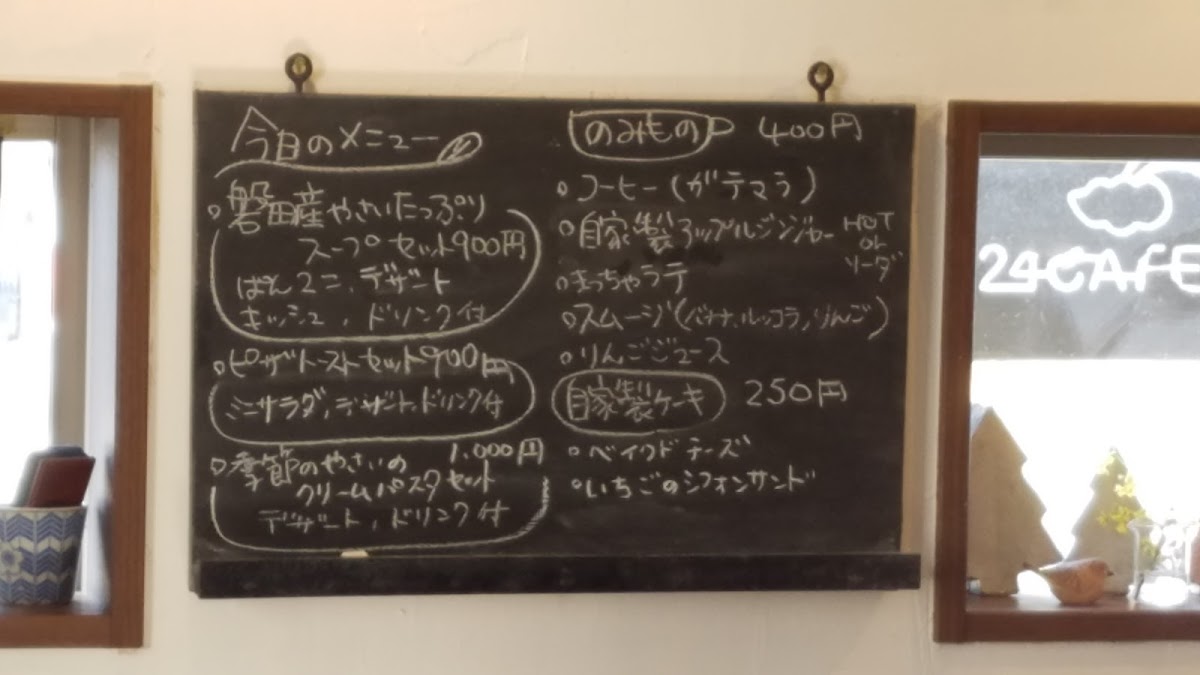 今日のメニュー
○磐田産やさいたっぷり
スープセット900円
ぱん2こ、デザート
キッシュ、ドリンク付
○ピザトーストセット900円
ミニサラダ、デザート、ドリンク付
○季節のやさいの 1,000円
クリームパスタセット
デザート、ドリンク付
のみもの 400円
○コーヒー(ガテマラ)
○自家製アップルジンジャー HOT
or
ソーダ
○まっちゃラテ
○スムージ(バナナ、ルッコラ、りんご)
○りんごジュース
自家製ケーキ 250円
○ベイクドチーズ
○いちごのシフォンサンド
24CAFE